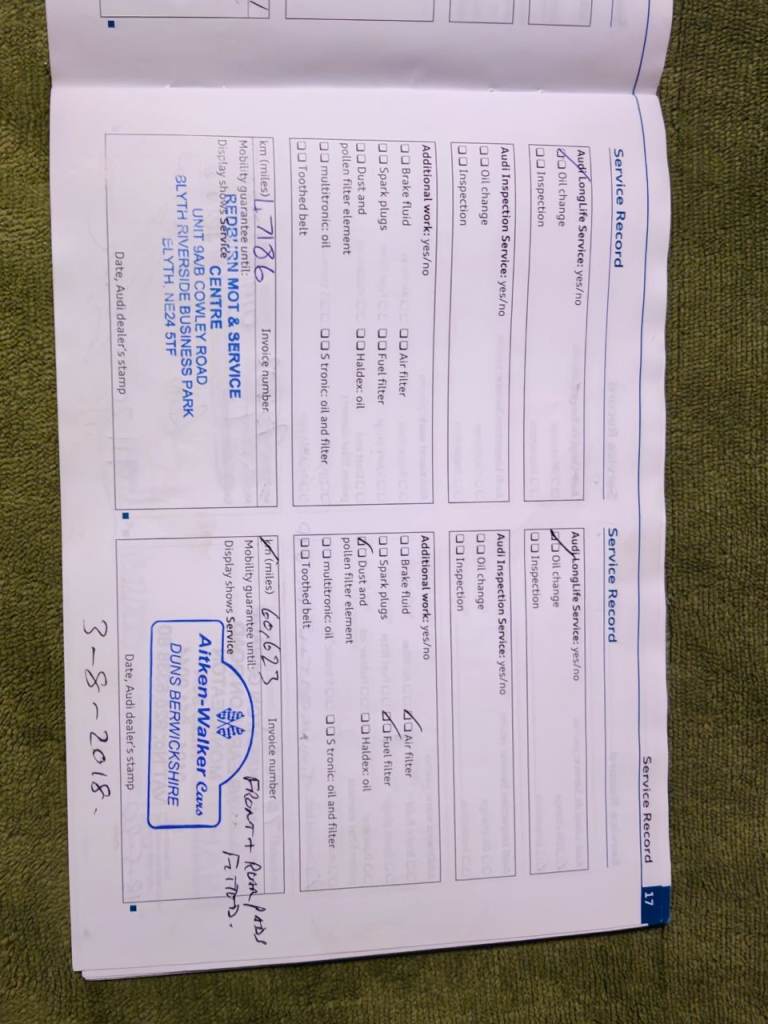 Service Record
17
Service Record
Audi LongLife Service: yes/no
Oil change
Inspection
Audi Inspection Service: yes/no
Oil change
Inspection
Additional work: yes/no
Brake fluid
Air filter
Spark plugs
Fuel filter
Dust and
pollen filter element
Haldex: oil
multitronic: oil
S tronic: oil and filter
Toothed belt
km (miles) 47186
Invoice number
Mobility guarantee until:
Display shows Service
REDBURN MOT & SERVICE
CENTRE
UNIT 9A/B COWLEY ROAD
BLYTH RIVERSIDE BUSINESS PARK
BLYTH. NE24 5TF
Date, Audi dealer's stamp
Service Record
Audi LongLife Service: yes/no
Oil change
Inspection
Audi Inspection Service: yes/no
Oil change
Inspection
Additional work: yes/no
Brake fluid
Air filter
Spark plugs
Fuel filter
Dust and
pollen filter element
Haldex: oil
multitronic: oil
S tronic: oil and filter
Toothed belt
km (miles) 60,623
Invoice number
Mobility guarantee until:
Display shows Service
FRONT + REAR PADS
FITTED.
Aitken-Walker Cars
DUNS BERWICKSHIRE
Date, Audi dealer's stamp
3-8-2018.